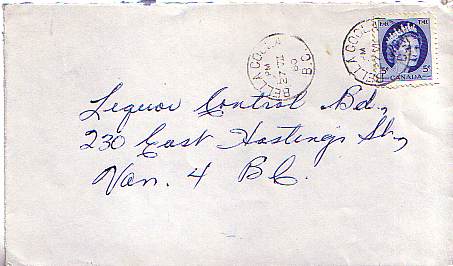 BELLA COOLA
PM
27 VI
60
B.C.
BELLA COOLA
PM
CANADA
5¢
5¢
Liquor Control Bd.,
230 East Hastings St.,
Van. 4 B C.